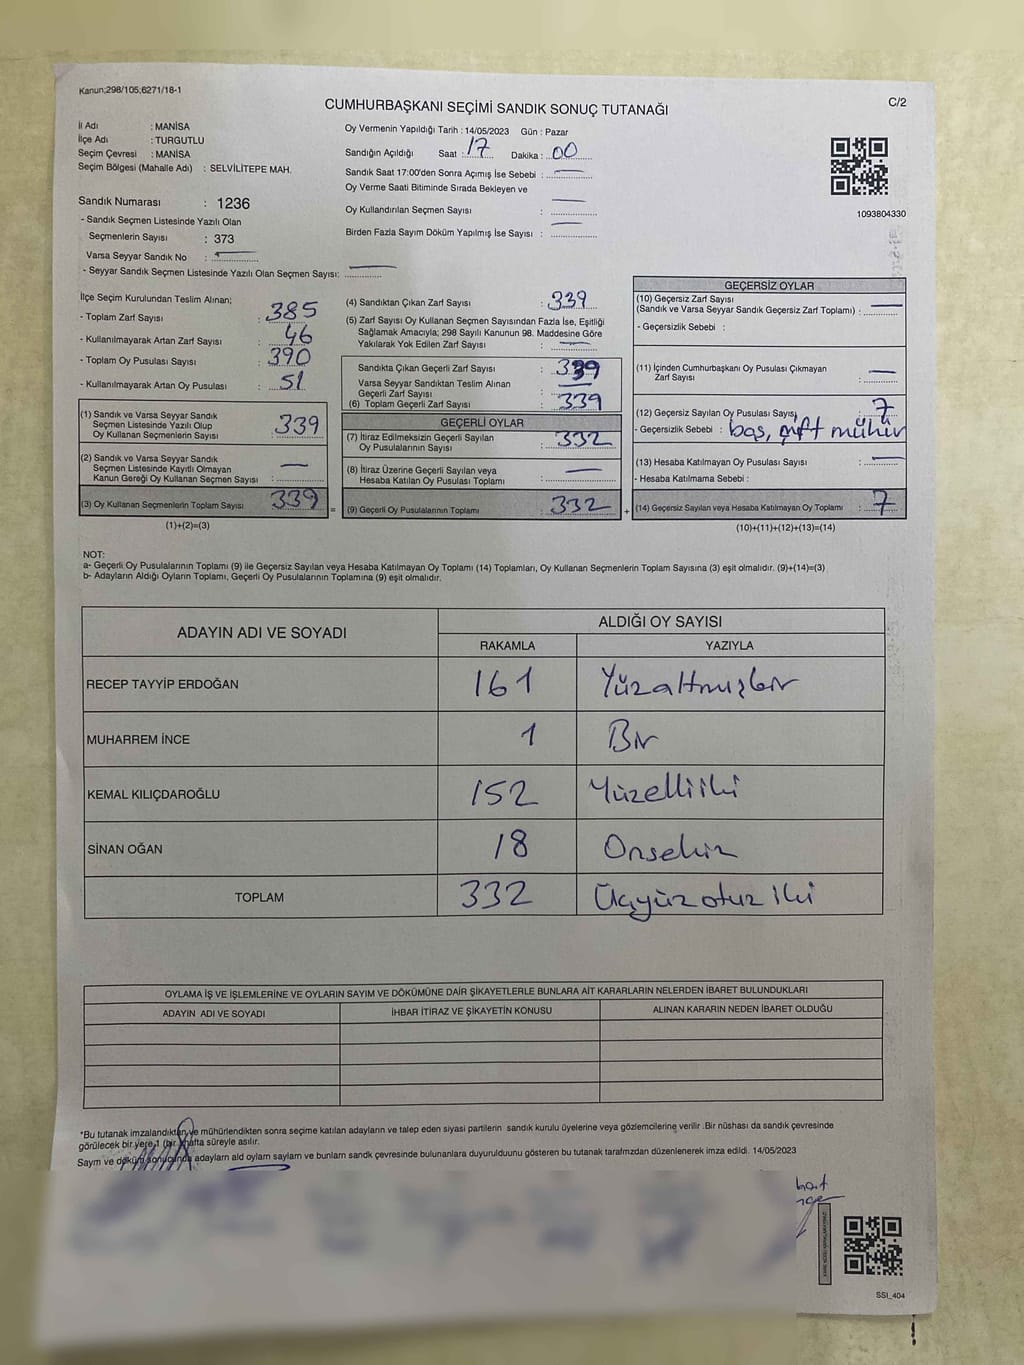 Kanun;298/105,6271/18-1
CUMHURBAŞKANI SEÇİMİ SANDIK SONUÇ TUTANAĞI
C/2
İl Adı : MANİSA
İlçe Adı : TURGUTLU
Seçim Çevresi : MANİSA
Seçim Bölgesi (Mahalle Adı) : SELVİLİTEPE MAH.
Sandık Numarası : 1236
- Sandık Seçmen Listesinde Yazılı Olan
Seçmenlerin Sayısı : 373
Varsa Seyyar Sandık No :
- Seyyar Sandık Seçmen Listesinde Yazılı Olan Seçmen Sayısı:
Oy Vermenin Yapıldığı Tarih : 14/05/2023 Gün : Pazar
Sandığın Açıldığı Saat : 17 Dakika : 00
Sandık Saat 17:00'den Sonra Açımış İse Sebebi :
Oy Verme Saati Bitiminde Sırada Bekleyen ve
Oy Kullandırılan Seçmen Sayısı :
Birden Fazla Sayım Döküm Yapılmış İse Sayısı :
1093804330
İlçe Seçim Kurulundan Teslim Alınan;
- Toplam Zarf Sayısı : 385
- Kullanılmayarak Artan Zarf Sayısı : 46
- Toplam Oy Pusulası Sayısı : 390
- Kullanılmayarak Artan Oy Pusulası : 51
(1) Sandık ve Varsa Seyyar Sandık
Seçmen Listesinde Yazılı Olup
Oy Kullanan Seçmenlerin Sayısı : 339
(2) Sandık ve Varsa Seyyar Sandık
Seçmen Listesinde Kayıtlı Olmayan
Kanun Gereği Oy Kullanan Seçmen Sayısı : —
(3) Oy Kullanan Seçmenlerin Toplam Sayısı : 339 =
(1)+(2)=(3)
(4) Sandıktan Çıkan Zarf Sayısı : 339
(5) Zarf Sayısı Oy Kullanan Seçmen Sayısından Fazla İse, Eşitliği
Sağlamak Amacıyla; 298 Sayılı Kanunun 98. Maddesine Göre
Yakılarak Yok Edilen Zarf Sayısı : —
Sandıkta Çıkan Geçerli Zarf Sayısı : 339
Varsa Seyyar Sandıktan Teslim Alınan
Geçerli Zarf Sayısı : —
(6) Toplam Geçerli Zarf Sayısı : 339
GEÇERLİ OYLAR
(7) İtiraz Edilmeksizin Geçerli Sayılan
Oy Pusulalarının Sayısı : 332
(8) İtiraz Üzerine Geçerli Sayılan veya
Hesaba Katılan Oy Pusulası Toplamı : —
(9) Geçerli Oy Pusulalarının Toplamı : 332 +
GEÇERSİZ OYLAR
(10) Geçersiz Zarf Sayısı
(Sandık ve Varsa Seyyar Sandık Geçersiz Zarf Toplamı) : —
- Geçersizlik Sebebi :
(11) İçinden Cumhurbaşkanı Oy Pusulası Çıkmayan
Zarf Sayısı : —
(12) Geçersiz Sayılan Oy Pusulası Sayısı : 7
- Geçersizlik Sebebi : boş, çift mühür
(13) Hesaba Katılmayan Oy Pusulası Sayısı : —
- Hesaba Katılmama Sebebi :
(14) Geçersiz Sayılan veya Hesaba Katılmayan Oy Toplamı : 7
(10)+(11)+(12)+(13)=(14)
NOT:
a- Geçerli Oy Pusulalarının Toplamı (9) ile Geçersiz Sayılan veya Hesaba Katılmayan Oy Toplamı (14) Toplamları, Oy Kullanan Seçmenlerin Toplam Sayısına (3) eşit olmalıdır. (9)+(14)=(3)
b- Adayların Aldığı Oyların Toplamı, Geçerli Oy Pusulalarının Toplamına (9) eşit olmalıdır.
ADAYIN ADI VE SOYADI ALDIĞI OY SAYISI
RAKAMLA YAZIYLA
RECEP TAYYİP ERDOĞAN 161 Yüzaltmışbir
MUHARREM İNCE 1 Bir
KEMAL KILIÇDAROĞLU 152 Yüzelliiki
SİNAN OĞAN 18 Onsekiz
TOPLAM 332 Üçyüzotuziki
OYLAMA İŞ VE İŞLEMLERİNE VE OYLARIN SAYIM VE DÖKÜMÜNE DAİR ŞİKAYETLERLE BUNLARA AİT KARARLARIN NELERDEN İBARET BULUNDUKLARI
ADAYIN ADI VE SOYADI İHBAR İTİRAZ VE ŞİKAYETİN KONUSU ALINAN KARARIN NEDEN İBARET OLDUĞU
*Bu tutanak imzalandıktan ve mühürlendikten sonra seçime katılan adayların ve talep eden siyasi partilerin sandık kurulu üyelerine veya gözlemcilerine verilir .Bir nüshası da sandık çevresinde
görülecek bir yere 1 (bir) hafta süreyle asılır.
Sayım ve döküm sonucunda adayların ald oyların sayları ve bunların sandk çevresinde bulunanlara duyurulduunu gösteren bu tutanak tarafmzdan düzenlenerek imza edildi. 14/05/2023
SSI_404